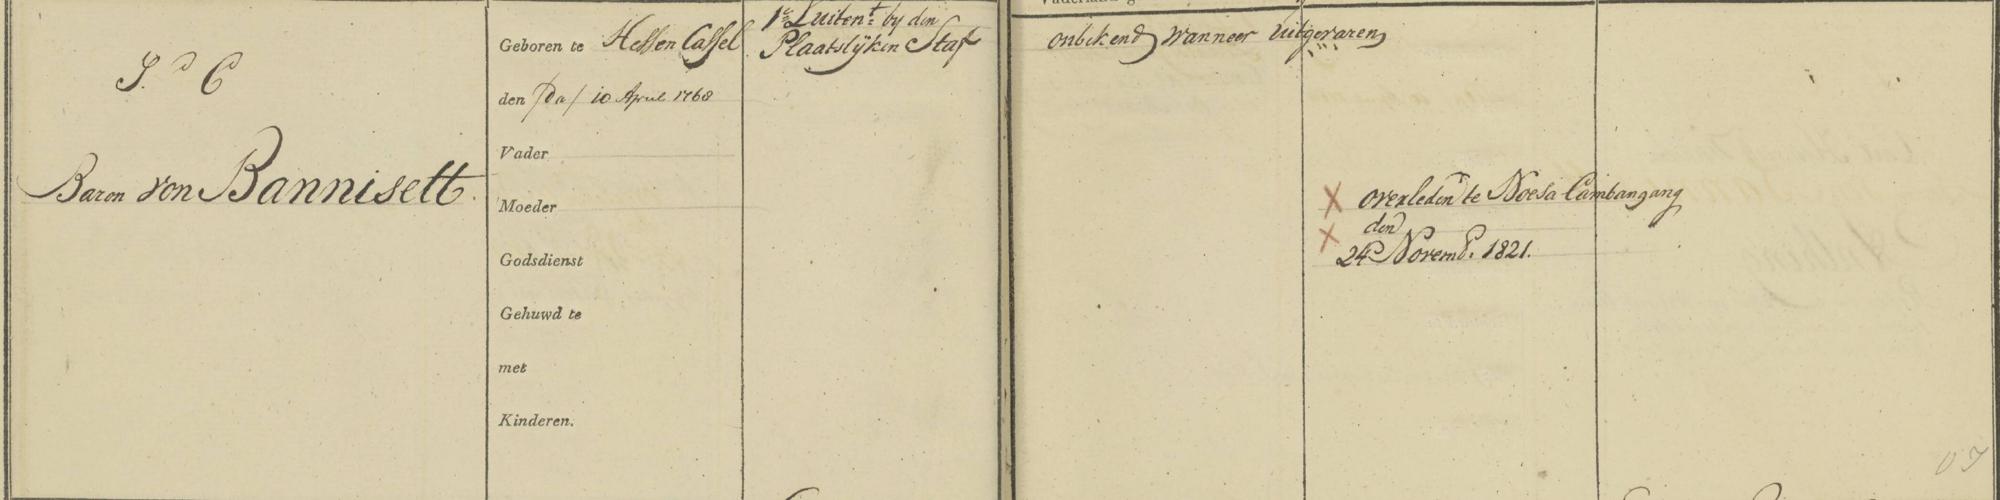 J. C
Baron von Bannisett.
Geboren te Hessen Cassel
den /Da/ 10 April 1768
Vader
Moeder
Godsdienst
Gehuwd te
met
Kinderen.
1e Luitent. by den
Plaatslyken Staf
onbekend wanneer uitgevaren
X overleden te Noesa Cambangang
X den
24 Novemb. 1821.